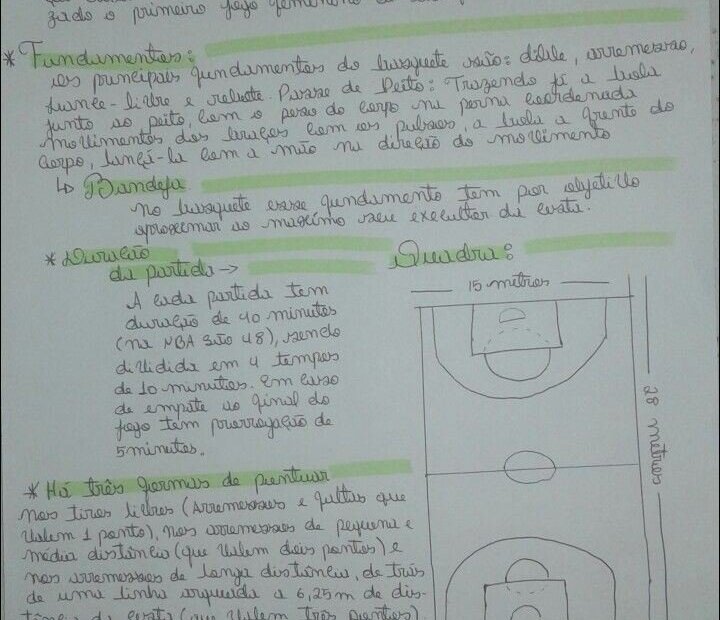 zado o primeiro jogo feminino
* Fundamentos:
os principais fundamentos do basquete são: dible, arremesso,
lance-livre e rebote. Passe de Peito: Trazendo já a bola
junto ao peito, com o peso do corpo na perna coordenada
movimentos dos braços com os pulsos, a bola a frente do
corpo, lançá-la com a mão na direção do movimento
↳ Bandeja
no basquete esse fundamento tem por objetivo
aproximar ao maximo seu executor da cesta.
* Duração
da partida →
A cada partida tem
duração de 40 minutos
(na NBA são 48), sendo
dividida em 4 tempos
de 10 minutos. Em caso
de empate ao final do
jogo tem prorrogação de
5 minutos.
Quadra:
15 metros
28 metros
* Há três formas de pontuar
nos tiros livres (Arremessos e faltas que
valem 1 ponto), nos arremessos de pequena e
média distância (que valem dois pontos) e
nos arremessos de longa distância, de trás
de uma linha arqueada a 6,25 m de dis-
tância da cesta (que valem três pontos).